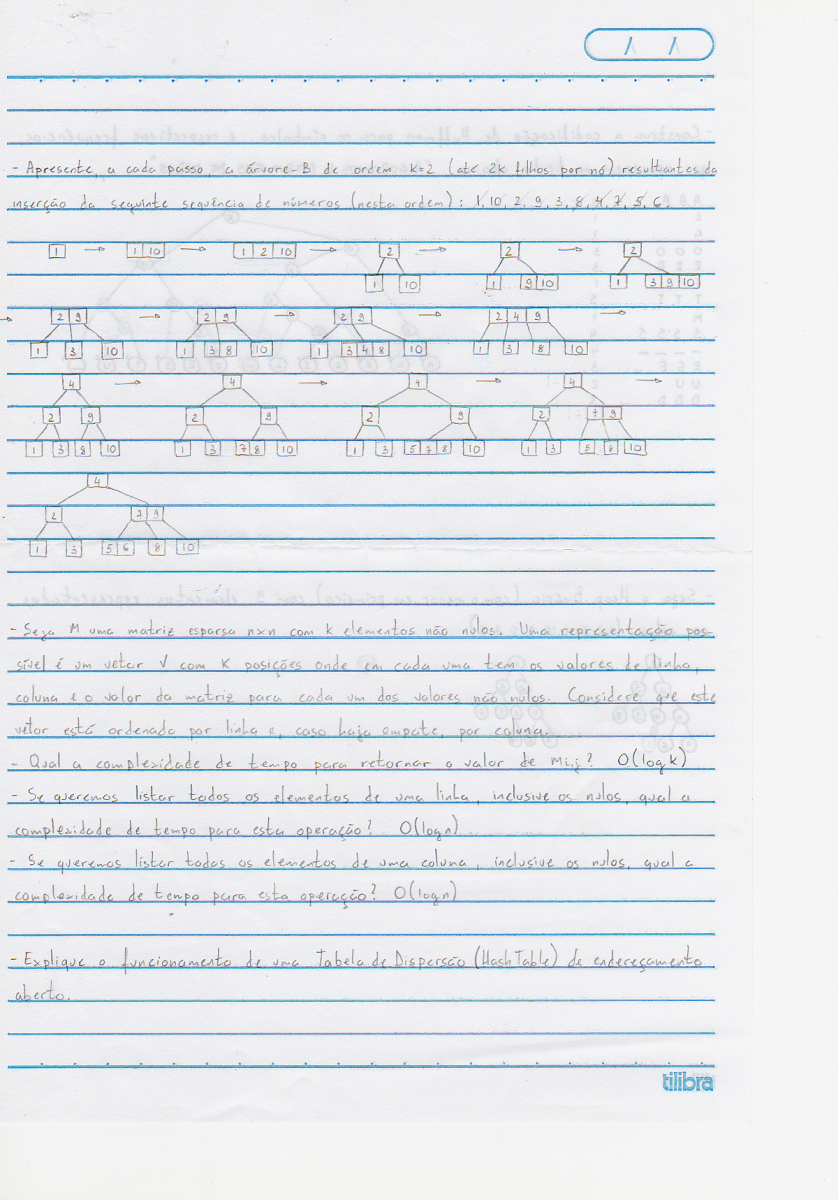 - Apresente, a cada passo, a árvore-B de ordem k=2 (até 2k filhos por nó) resultantes da
inserção da seguinte sequência de números (nesta ordem): 1, 10, 2, 9, 3, 8, 4, 7, 5, 6.
1 → 1 10 → 1 2 10 → 2 → 2 → 2
1 10 1 9 10 1 3 9 10
→ 2 9 → 2 9 → 2 9 → 2 4 9 →
1 3 10 1 3 8 10 1 3 4 8 10 1 3 8 10
4 → 4 → 4 → 4 →
2 9 2 9 2 9 2 7 9
1 3 8 10 1 3 7 8 10 1 3 5 7 8 10 1 3 5 8 10
4
2 7 9
1 3 5 6 8 10
- Seja M uma matriz esparsa nxn com k elementos não nulos. Uma representação pos-
sível é um vetor V com K posições onde em cada uma tem os valores de linha,
coluna e o valor da matriz para cada um dos valores não nulos. Considere que este
vetor está ordenado por linha e, caso haja empate, por coluna.
- Qual a complexidade de tempo para retornar o valor de Mi,j? O(log k)
- Se queremos listar todos os elementos de uma linha, inclusive os nulos, qual a
complexidade de tempo para esta operação? O(log n)
- Se queremos listar todos os elementos de uma coluna, inclusive os nulos, qual a
complexidade de tempo para esta operação? O(log n)
- Explique o funcionamento de uma Tabela de Dispersão (Hash Table) de endereçamento
aberto.
tilibra